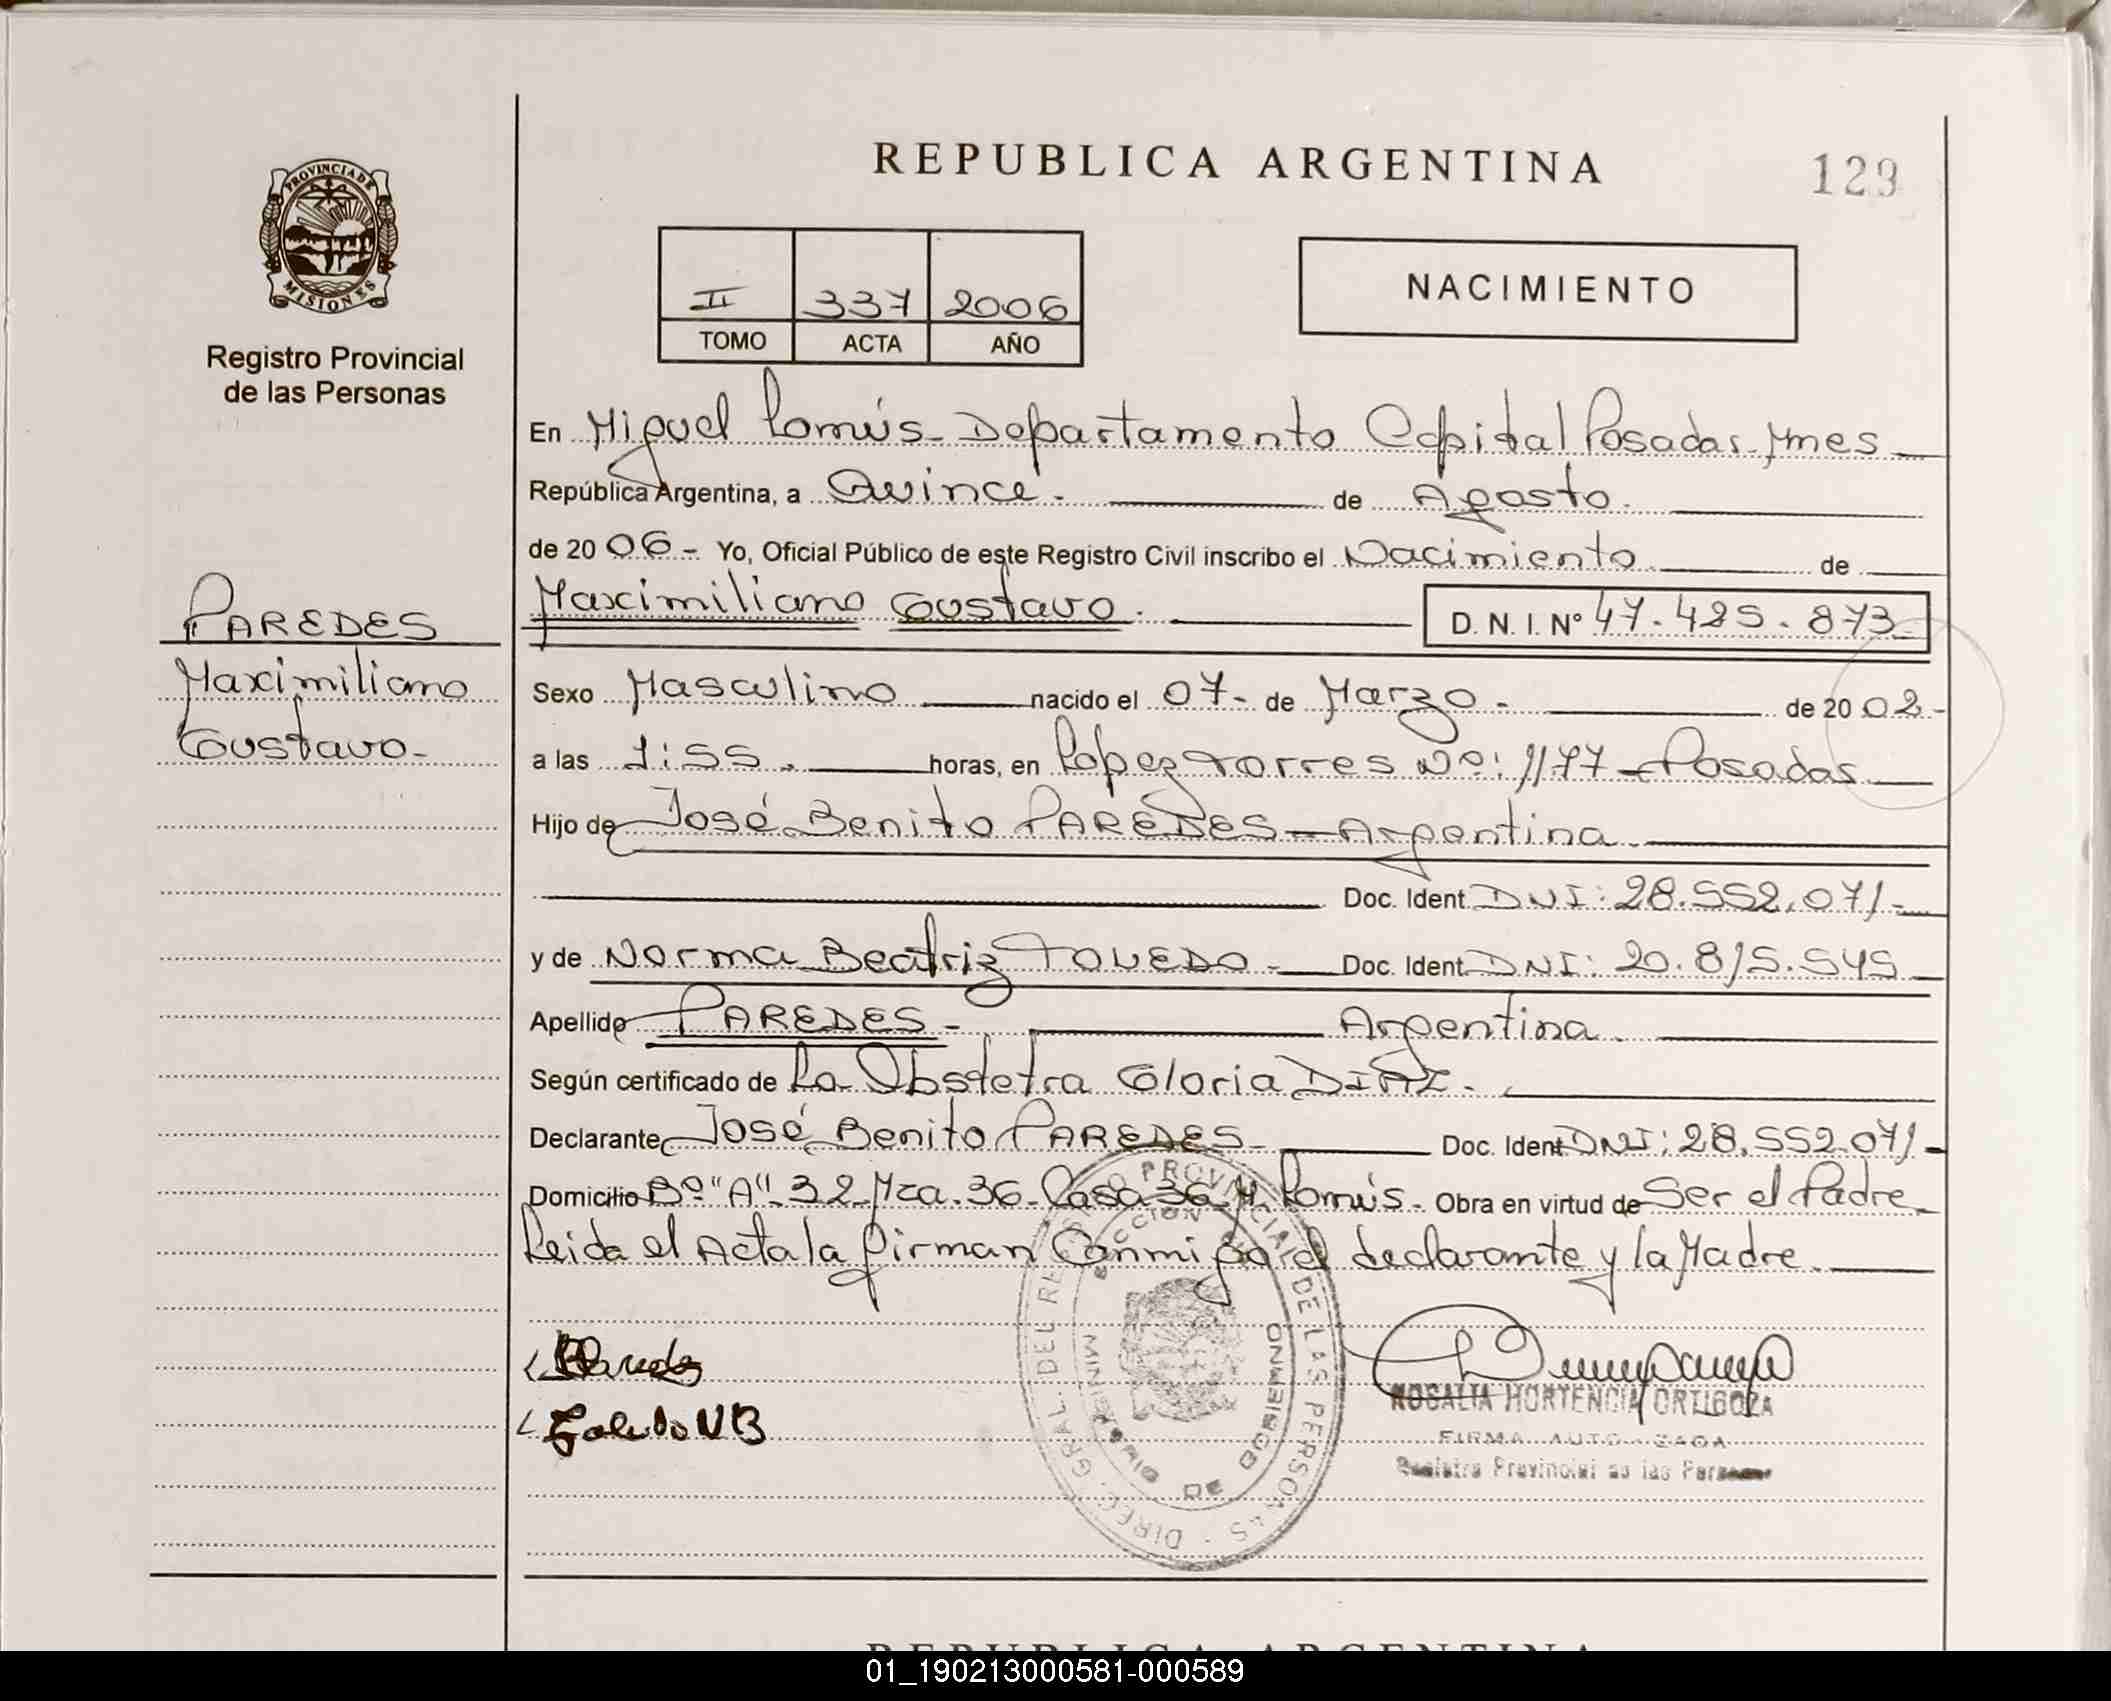 REPUBLICA ARGENTINA
129
PROVINCIA DE MISIONES
Registro Provincial
de las Personas
II 337 2006
TOMO ACTA AÑO
NACIMIENTO
En Miguel Lanús - Departamento Capital Posadas - Mnes
República Argentina, a Quince - de Agosto.
de 20 06 - Yo, Oficial Público de este Registro Civil inscribo el Nacimiento de
Maximiliano Gustavo. D. N. I. Nº 47.425.873
PAREDES
Maximiliano
Gustavo -
Sexo Masculino nacido el 07 - de Marzo - de 20 02 -
a las 1:55. horas, en López Torres Nº: 1177 - Posadas
Hijo de José Benito PAREDES - Argentina
Doc. Ident DNI: 28.552.071 -
y de Norma Beatriz TOLEDO - Doc. Ident DNI: 20.815.545
Apellido PAREDES - Argentina.
Según certificado de La Obstetra Gloria DIAZ.
Declarante José Benito PAREDES - Doc. Ident DNI: 28.552.071 -
Domicilio Bº "A" 32 Mza. 36 - Casa 36 M. Lanús - Obra en virtud de Ser el Padre
Leida el Acta la firman Conmigo el declarante y la Madre.
Toledo N B
DIREC. GRAL. DEL REGISTRO PROVINCIAL DE LAS PERSONAS
MINISTERIO DE GOBIERNO
ROSALIA HORTENCIA ORTIGOZA
FIRMA AUTORIZADA
Registro Provincial de las Personas
REPUBLICA ARGENTINA
01_190213000581-000589